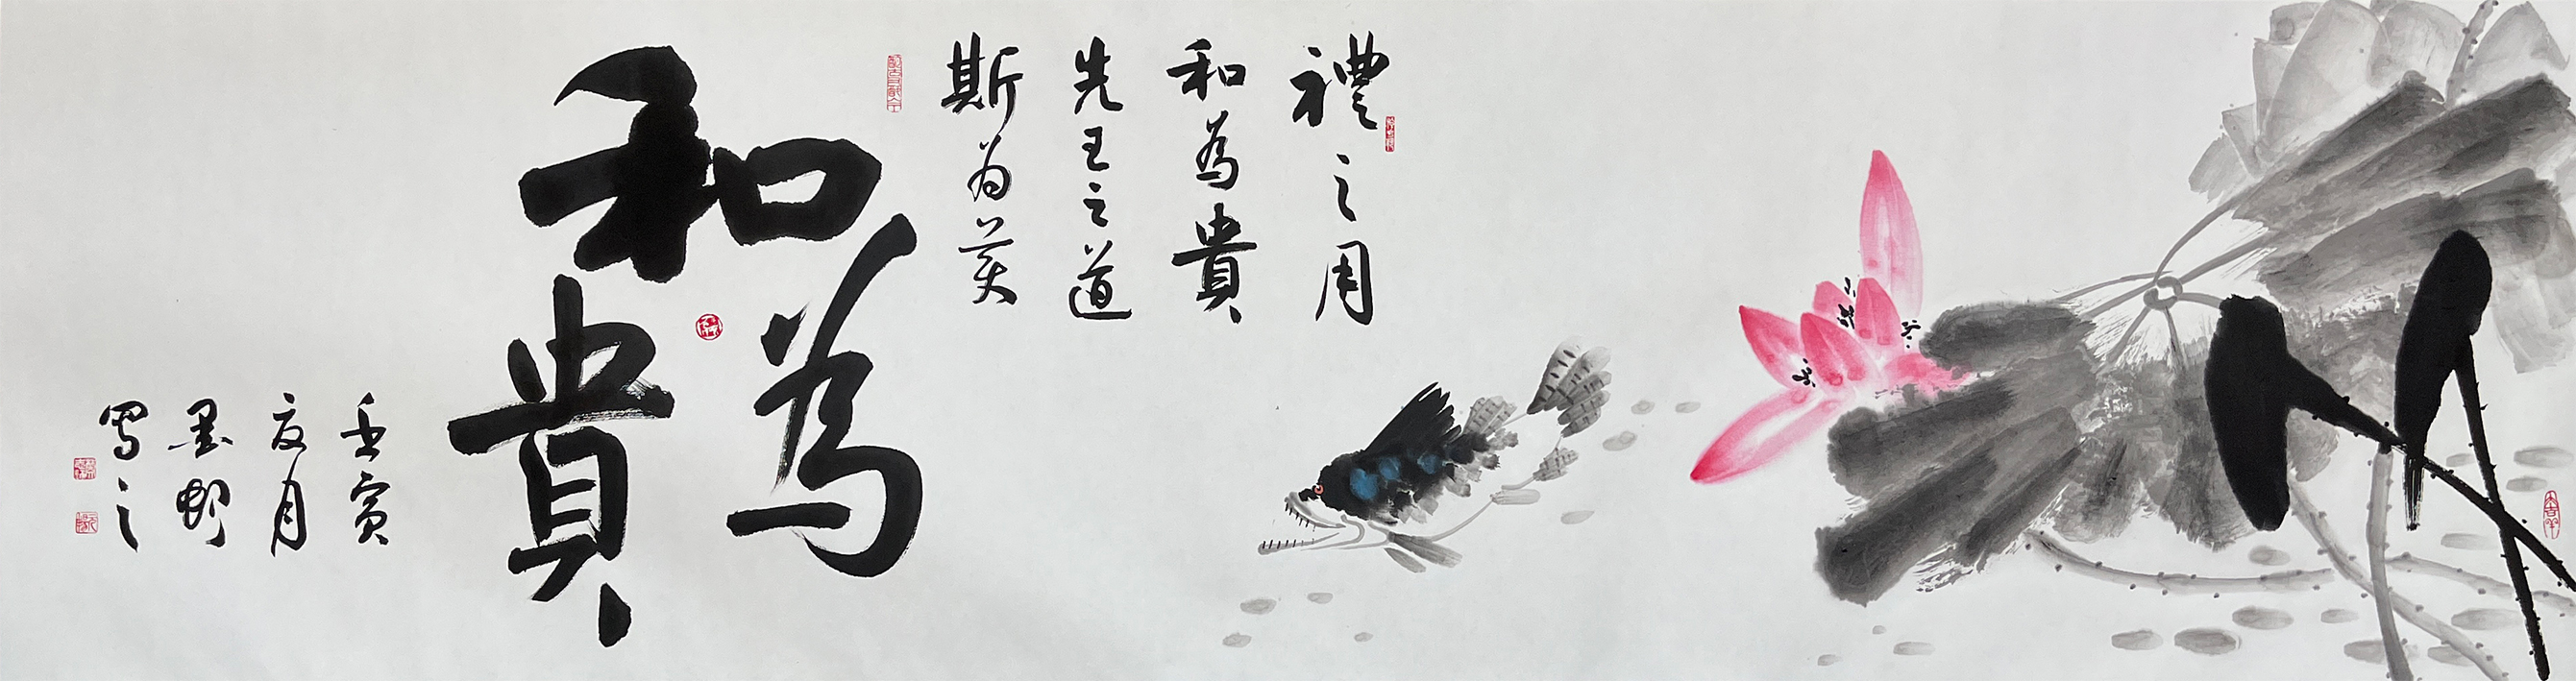 大吉羊
禮之用
和為貴
先王之道
斯为美
和為貴
壬寅
夏月
墨
寫之